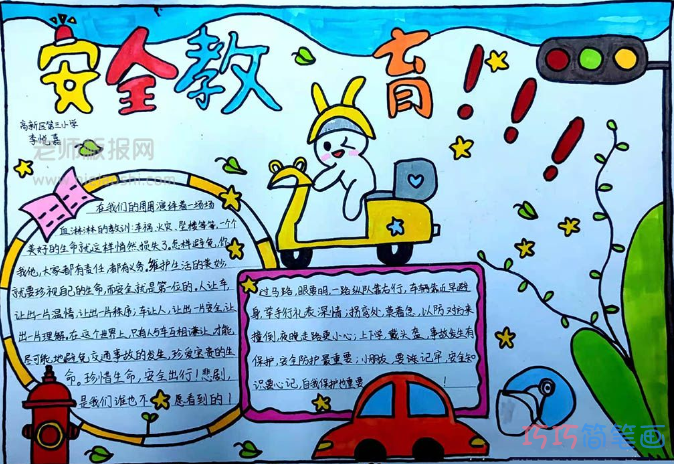 安全教育!!!
高新区第三小学
李悦嘉
老师板报网
在我们的周围演绎着一场场
血淋淋的教训:车祸、火灾、坠楼等等,一个个
美好的生命就这样悄然损失了,怎样避免,你
我他,大家都有责任,都有义务,维护生活的美妙,
就要珍视自己的生命,而安全就是第一位的。人让车,
让出一片温情,让出一片秩序;车让人,让出一片安全,让
出一片理解。在这个世界上,只有人与车互相谦让,才能
尽可能地避免交通事故的发生,珍爱宝贵的生
命。珍惜生命,安全出行!悲剧,
是我们谁也不愿看到的!
过马路,眼要明,一路纵队靠右行,车辆靠近早避
身,举手行礼表深情;拐弯处,要看急,以防对抢来
撞倒,夜晚走路更小心;上下学,戴头盔,事故发生有
保护,安全防护最重要;小朋友,要谨记牢,安全知
识要心记,自我保护也重要!
巧巧简笔画